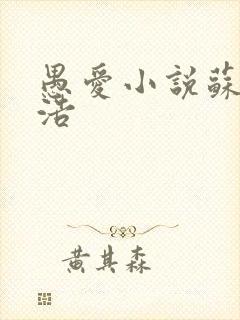 愚愛小說蘇
活
黃其森